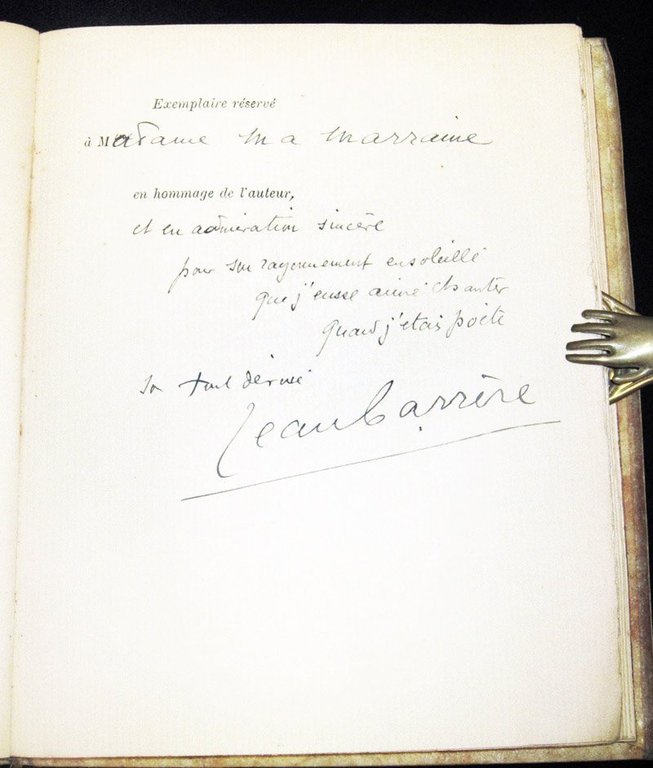 Exemplaire réservé
à Madame Ma Marraine
en hommage de l'auteur,
et en admiration sincère
pour son rayonnement ensoleillé
que j'eusse aimé chanter
quand j'étais poète
Son tout dévoué
Jean Carrère